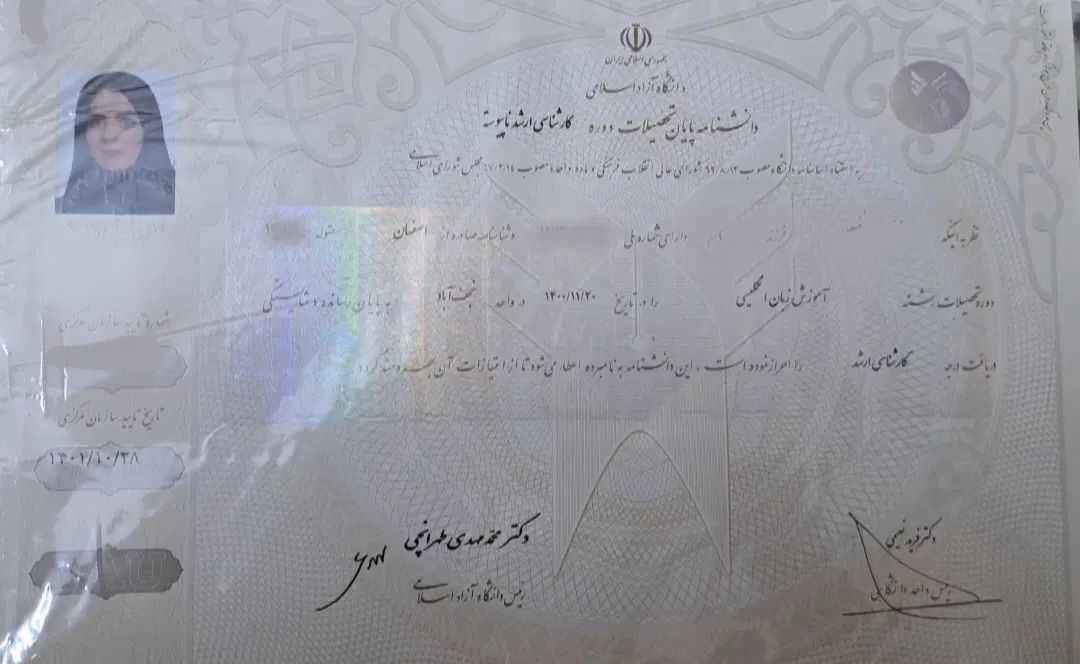 جمهوری اسلامی ایران
دانشگاه آزاد اسلامی
دانشنامه پایان تحصیلات دوره کارشناسی ارشد ناپیوسته
به استناد اساسنامه دانشگاه مصوب شورای عالی انقلاب فرهنگی و ماده واحده مصوب مجلس شورای اسلامی
نظر به اینکه فرزند دارای شماره ملی و شناسنامه صادره از اصفهان متولد
دوره تحصیلات رشته آموزش زبان انگلیسی را در تاریخ ۱۴۰۰/۱۱/۳۰ در واحد نجف آباد به پایان رسانده و شایستگی
دریافت درجه کارشناسی ارشد را احراز نموده است، این دانشنامه به نامبرده اعطا می‌شود تا از امتیازات آن بهره‌مند گردد
شماره تایید سازمان مرکزی
تاریخ تایید سازمان مرکزی
۱۴۰۲/۱۰/۲۸
دکتر محمدمهدی طهرانچی
رئیس دانشگاه آزاد اسلامی
دکتر فرید نعیمی
رئیس واحد دانشگاهی